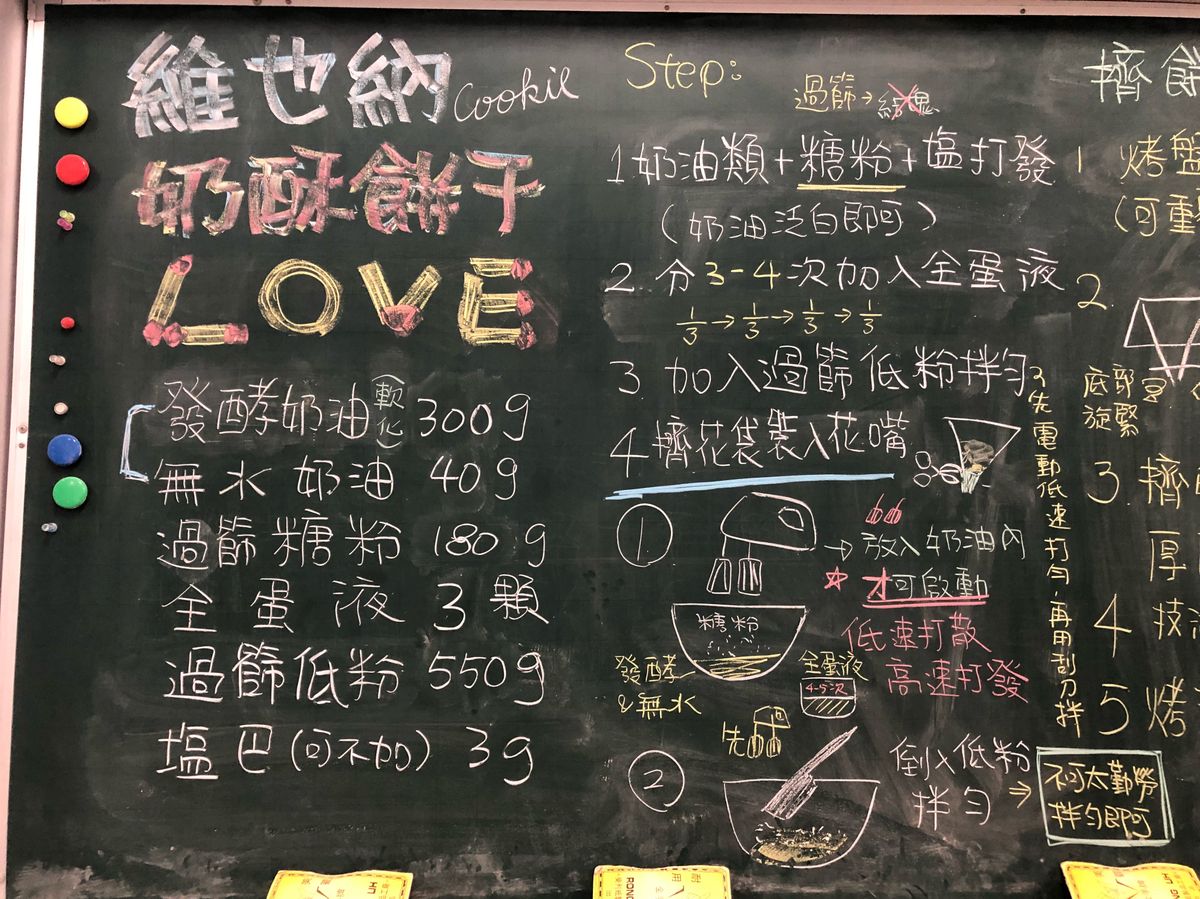 維也納 Cookie
奶酥餅干
LOVE
發酵奶油(軟化) 300g
無水奶油 40g
過篩糖粉 180g
全蛋液 3顆
過篩低粉 550g
塩巴(可不加) 3g
Step:
過篩→結塊
1 奶油類+糖粉+塩打發
(奶油泛白即可)
2. 分3-4次加入全蛋液
1/3→1/3→1/3→1/3
3. 加入過篩低粉拌勻
4 擠花袋裝入花嘴
①
→放入奶油內
*才可啟動
低速打散
高速打發
糖粉
發酵
&無水
全蛋液
4-5次
先電動低速打勻,再用刮刀拌
②
先
倒入低粉
拌勻⇒
不可太勤勞
拌勻即可
擠餅
1 烤盤
(可重
2.
底部
旋緊
3. 擠
厚
4 技
5 烤